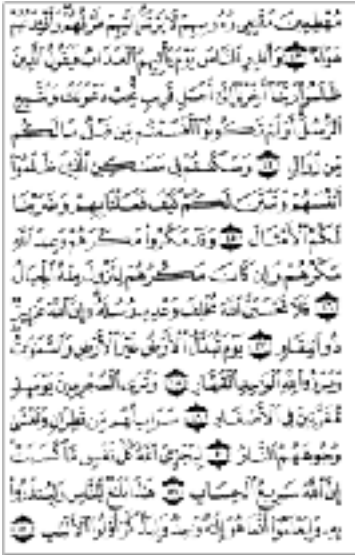 مُهْطِعِينَ مُقْنِعِي رُءُوسِهِمْ لَا يَرْتَدُّ إِلَيْهِمْ طَرْفُهُمْ وَأَفْئِدَتُهُمْ
هَوَاءٌ ﴿٤٣﴾ وَأَنذِرِ النَّاسَ يَوْمَ يَأْتِيهِمُ الْعَذَابُ فَيَقُولُ الَّذِينَ
ظَلَمُوا رَبَّنَا أَخِّرْنَا إِلَىٰ أَجَلٍ قَرِيبٍ نُّجِبْ دَعْوَتَكَ وَنَتَّبِعِ
الرُّسُلَ أَوَلَمْ تَكُونُوا أَقْسَمْتُم مِّن قَبْلُ مَا لَكُم
مِّن زَوَالٍ ﴿٤٤﴾ وَسَكَنتُمْ فِي مَسَاكِنِ الَّذِينَ ظَلَمُوا
أَنفُسَهُمْ وَتَبَيَّنَ لَكُمْ كَيْفَ فَعَلْنَا بِهِمْ وَضَرَبْنَا
لَكُمُ الْأَمْثَالَ ﴿٤٥﴾ وَقَدْ مَكَرُوا مَكْرَهُمْ وَعِندَ اللَّهِ
مَكْرُهُمْ وَإِن كَانَ مَكْرُهُمْ لِتَزُولَ مِنْهُ الْجِبَالُ
﴿٤٦﴾ فَلَا تَحْسَبَنَّ اللَّهَ مُخْلِفَ وَعْدِهِ رُسُلَهُ إِنَّ اللَّهَ عَزِيزٌ
ذُو انتِقَامٍ ﴿٤٧﴾ يَوْمَ تُبَدَّلُ الْأَرْضُ غَيْرَ الْأَرْضِ وَالسَّمَاوَاتُ
وَبَرَزُوا لِلَّهِ الْوَاحِدِ الْقَهَّارِ ﴿٤٨﴾ وَتَرَى الْمُجْرِمِينَ يَوْمَئِذٍ
مُّقَرَّنِينَ فِي الْأَصْفَادِ ﴿٤٩﴾ سَرَابِيلُهُم مِّن قَطِرَانٍ وَتَغْشَىٰ
وُجُوهَهُمُ النَّارُ ﴿٥٠﴾ لِيَجْزِيَ اللَّهُ كُلَّ نَفْسٍ مَّا كَسَبَتْ
إِنَّ اللَّهَ سَرِيعُ الْحِسَابِ ﴿٥١﴾ هَٰذَا بَلَاغٌ لِّلنَّاسِ وَلِيُنذَرُوا
بِهِ وَلِيَعْلَمُوا أَنَّمَا هُوَ إِلَٰهٌ وَاحِدٌ وَلِيَذَّكَّرَ أُولُو الْأَلْبَابِ ﴿٥٢﴾